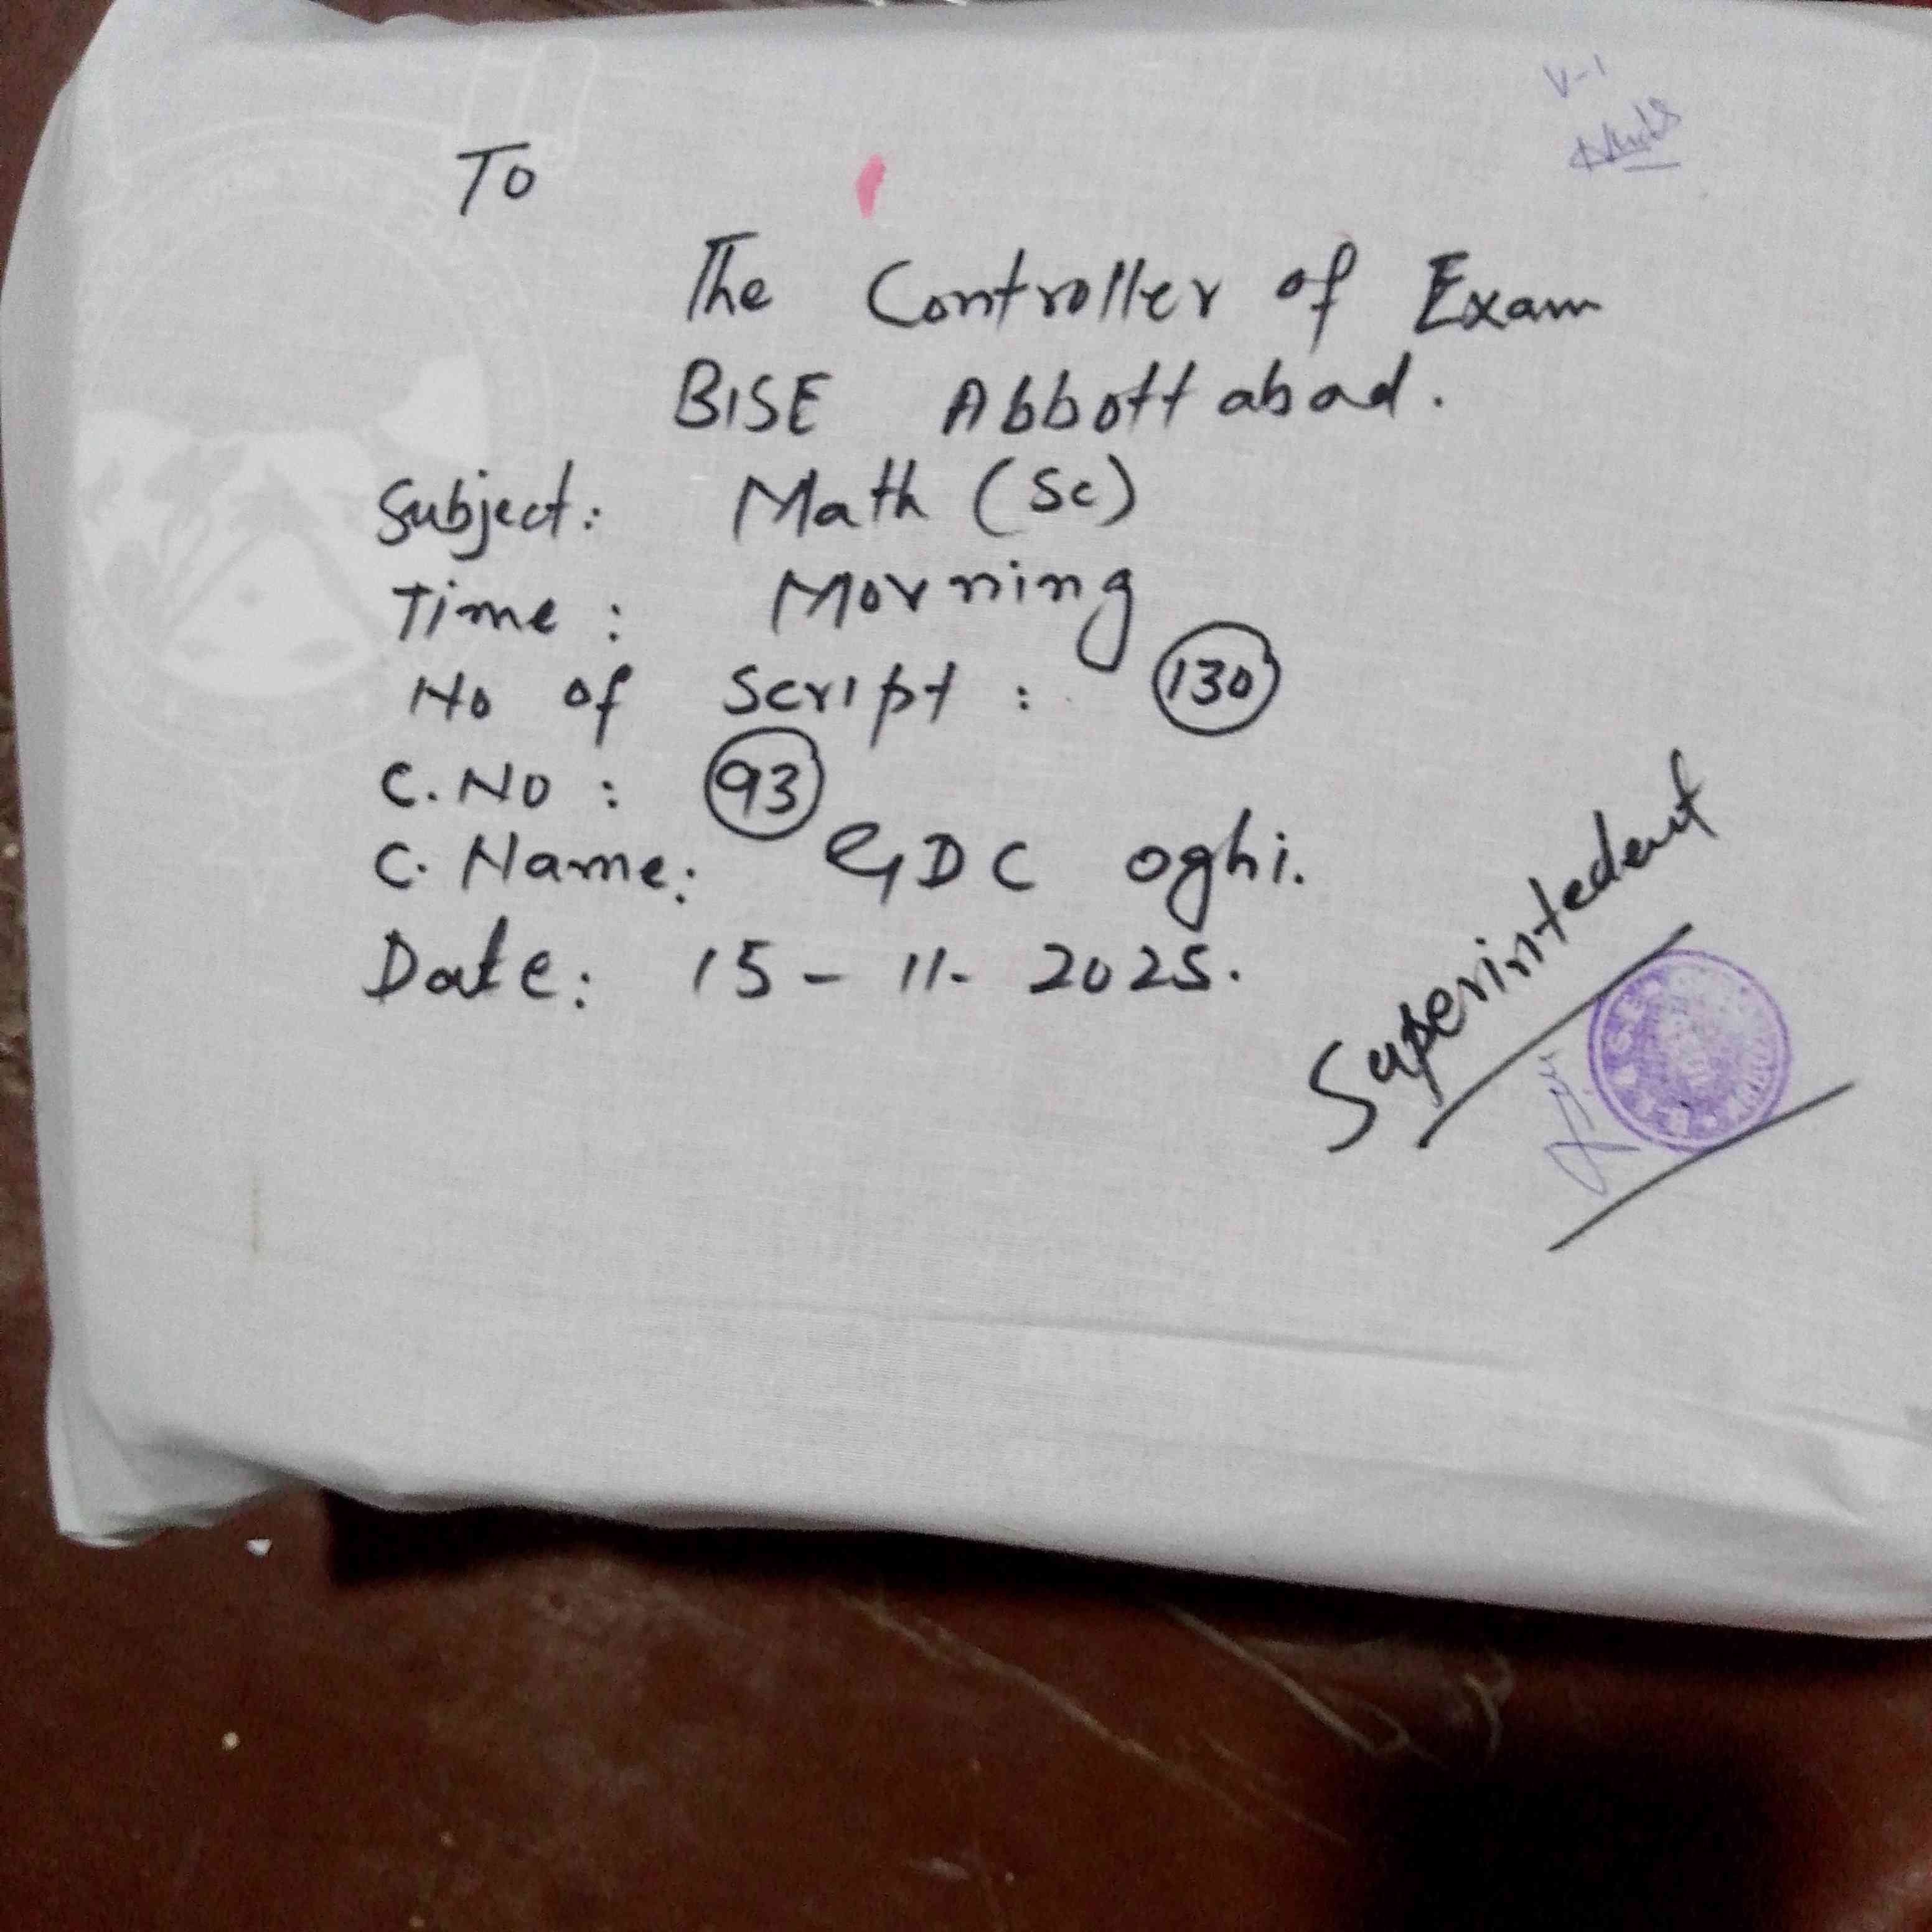 V-1
To
The Controller of Exam
BISE Abbottabad.
Subject: Math (Sc)
Time: Morning
No of Script: 130
C.No: 93
C. Name: GDC oghi.
Date: 15-11-2025.
Superintedent